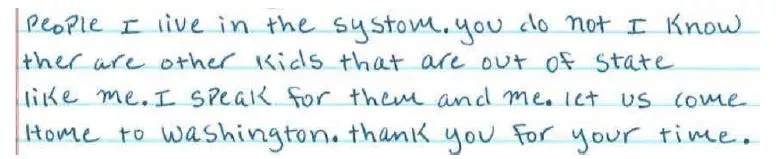 PeoPle I live in the systom. you do not I Know
ther are other Kids that are out of State
like me. I SPeak for them and me. let us come
Home to Washington. thank you for your time.